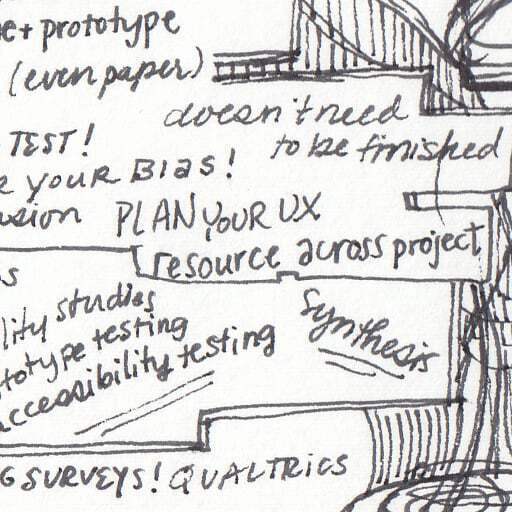 et prototype
(even paper)
doesn't need
to be finished
TEST!
YOUR BIAS!
PLAN YOUR UX
resource across project
studies
testing
accessibility testing
Synthesis
SURVEYS! QUALTRICS